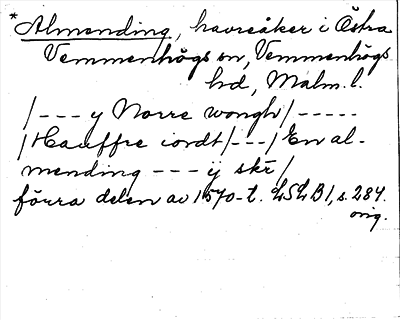 *Almending, havreåker i Östra
Vemmenhögs sn, Vemmenhögs
hd, Malm. l.
/--- y Norre wongh/-----
/Hauffre iordt/---/ En al-
mending --- ij skr/
förra delen av 1570-t. LSLB1, s. 284.
orig.